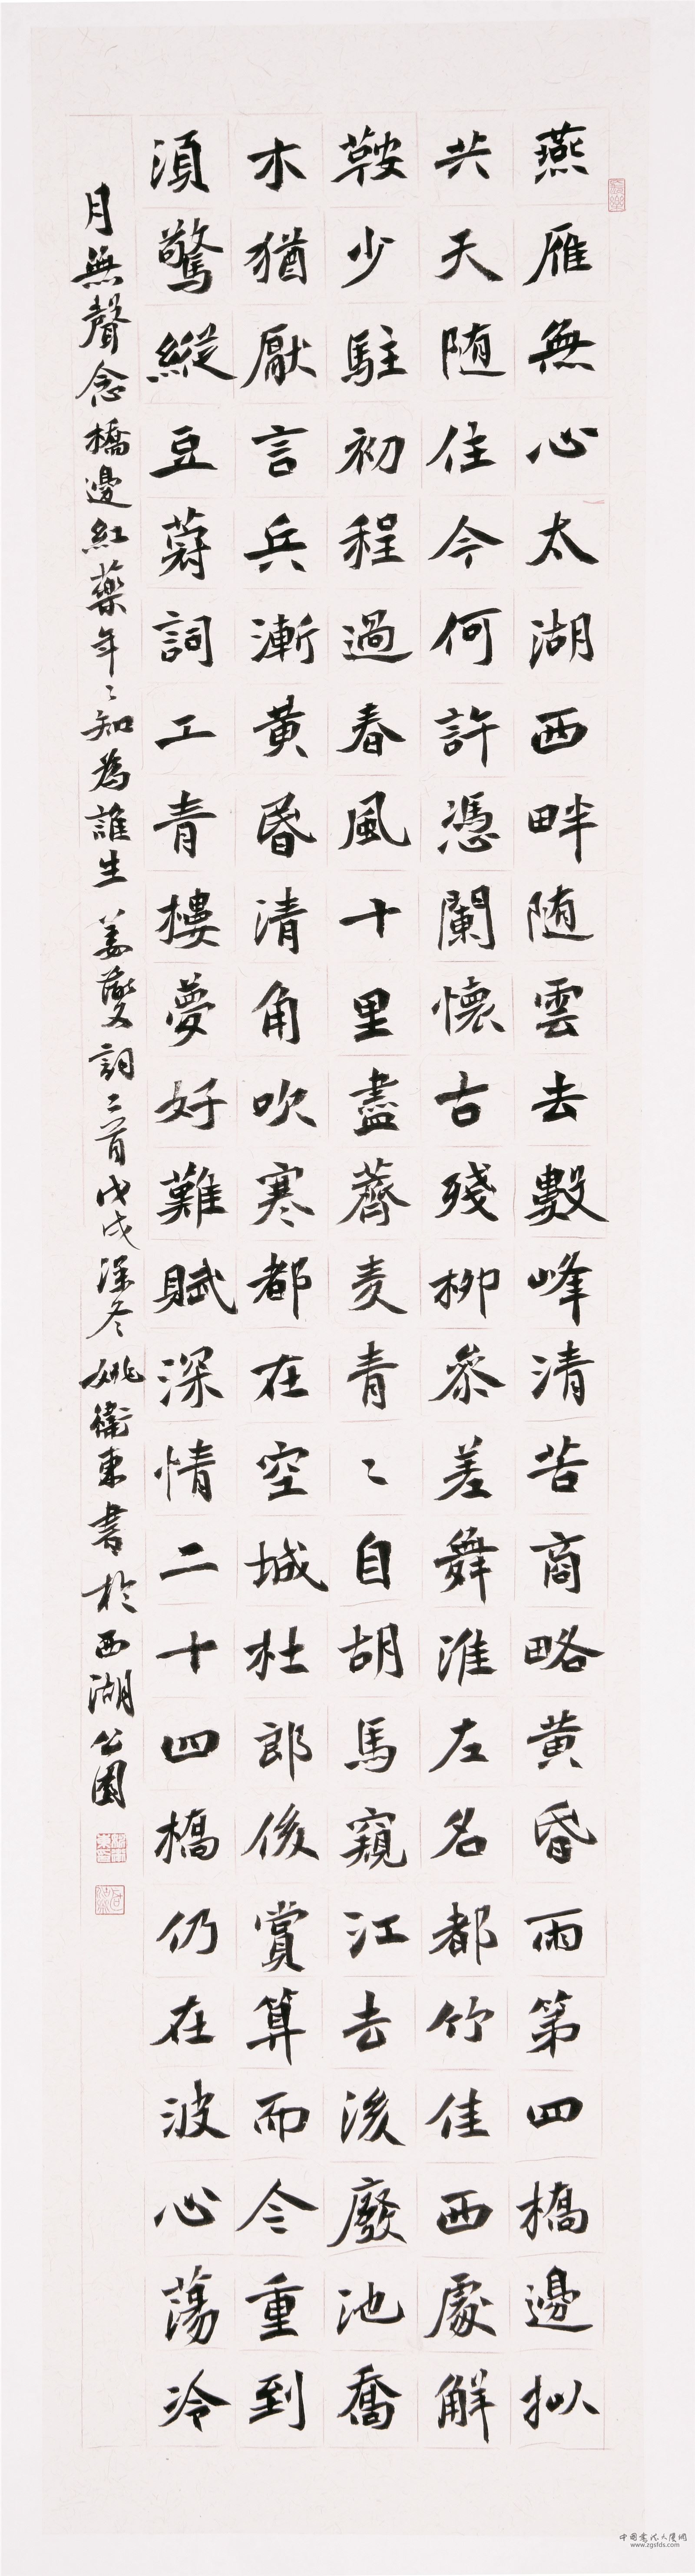 燕雁無心太湖西畔随雲去數峰清苦商略黄昏雨第四橋邊拟
共天随住今何許憑闌懷古殘柳參差舞淮左名都竹佳西處解
鞍少駐初程過春風十里盡薺麦青〻自胡馬窺江去後廢池喬
木猶厭言兵漸黄昏清角吹寒都在空城杜郎俊賞算而今重到
須驚縱豆蔻詞工青樓夢好難賦深情二十四橋仍在波心蕩冷
月無聲念橋邊紅藥年〻知為誰生 姜夔詞二首戊戌深冬姚衛東書於西湖公園
中国书法人淚网
www.zgsfds.com